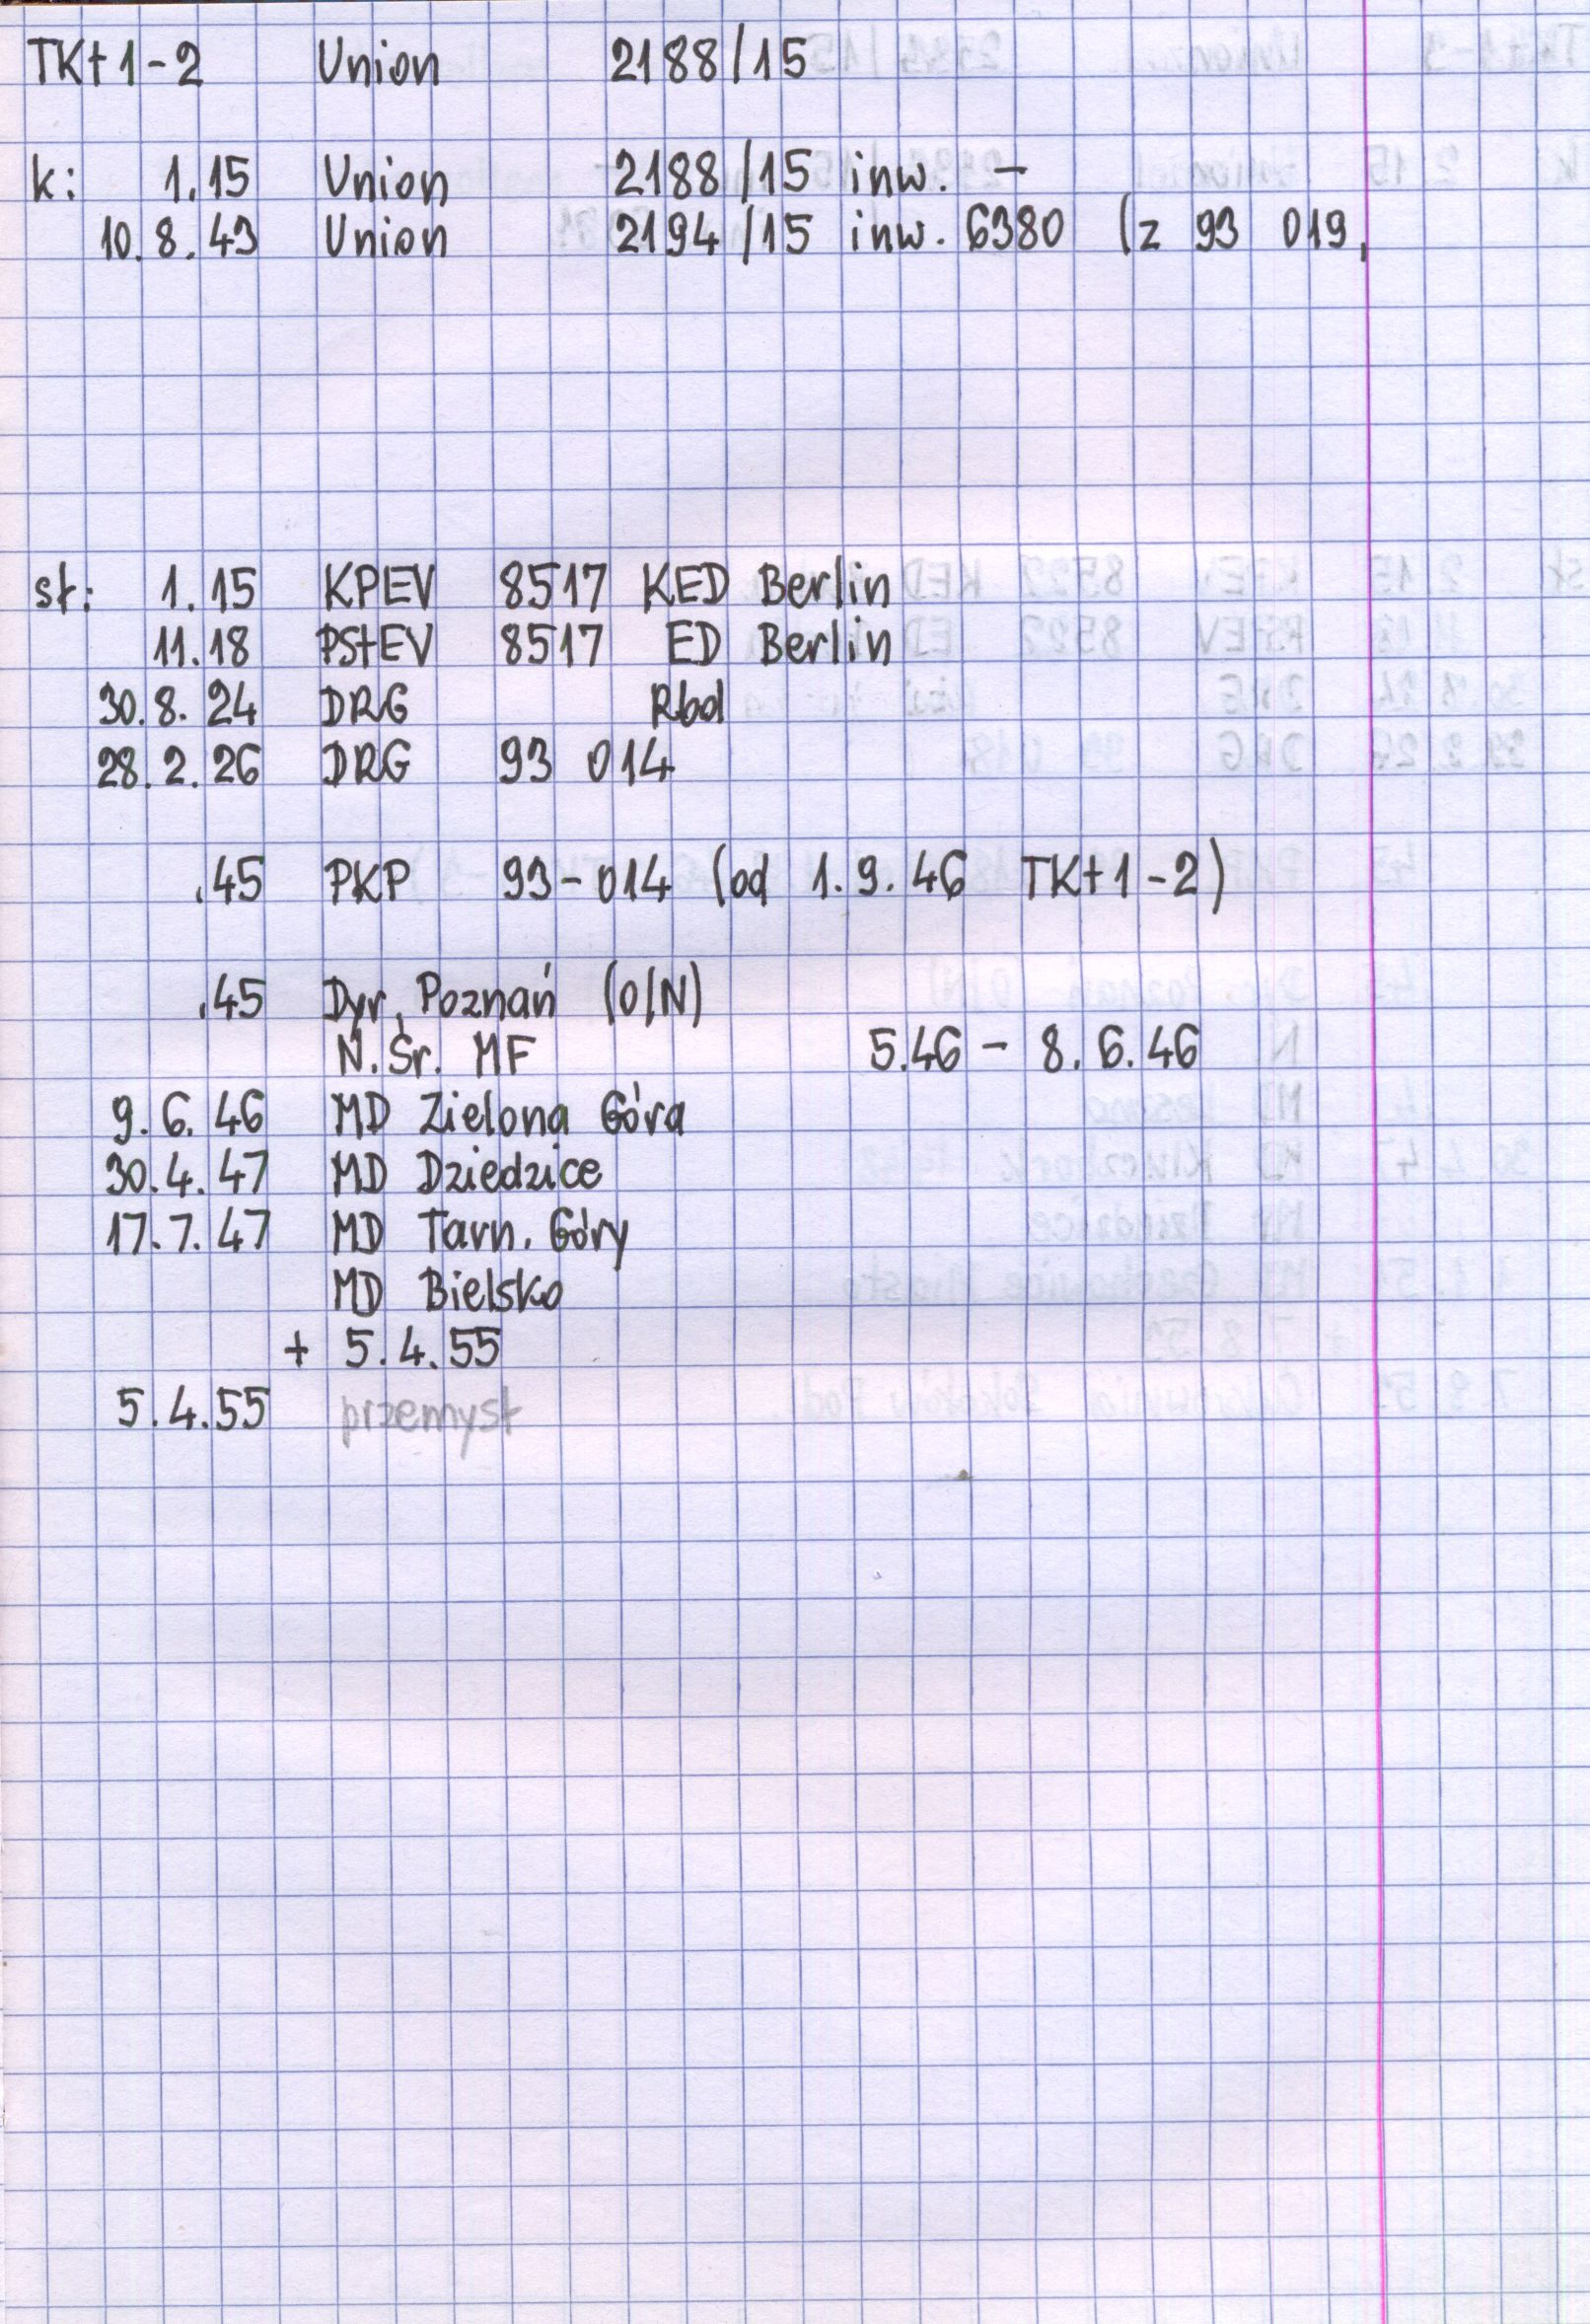 TKt 1-2 Union 2188/15
k: 1.15 Union 2188/15 inw. -
10.8.43 Union 2194/15 inw. 6380 (z 93 019,
st: 1.15 KPEV 8517 KED Berlin
11.18 PStEV 8517 ED Berlin
30.8.24 DRG Rbd
28.2.26 DRG 93 014
.45 PKP 93-014 (od 1.9.46 TKt 1-2)
.45 Dyr. Poznań (O/N)
N. Śr. MF 5.46 - 8.6.46
9.6.46 MD Zielona Góra
30.4.47 MD Dziedzice
17.7.47 MD Tarn. Góry
MD Bielsko
+ 5.4.55
5.4.55 przemysł